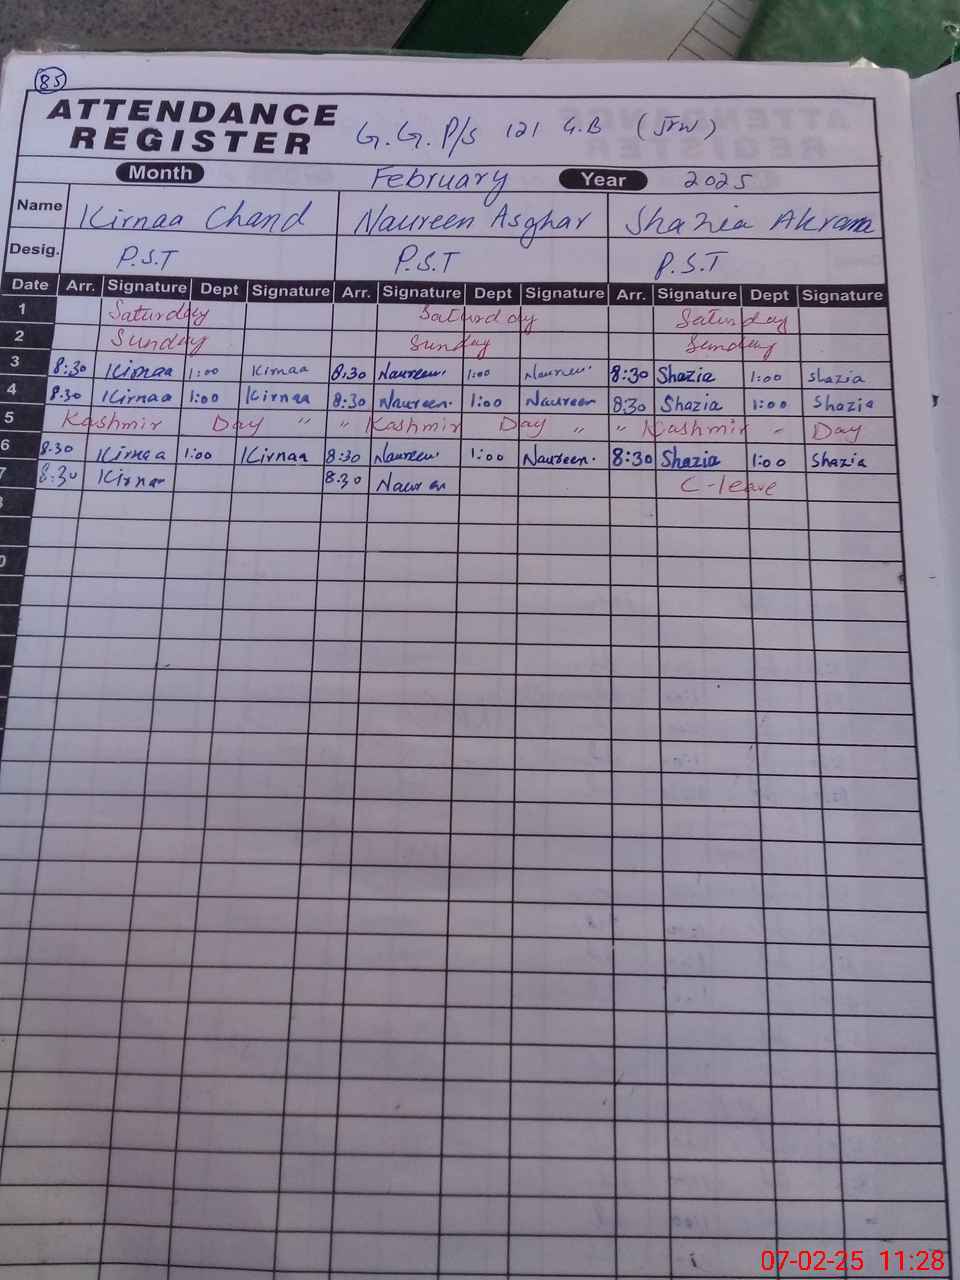 85
ATTENDANCE
REGISTER
G.G.P/S 121 G.B (JrW)
Month February Year 2025
Name Kirnaa Chand Naureen Asghar Shazia Akram
Desig. P.S.T P.S.T P.S.T
Date Arr. Signature Dept Signature Arr. Signature Dept Signature Arr. Signature Dept Signature
1 Saturday Saturday Saturday
2 Sunday Sunday Sunday
3 8:30 Kirnaa 1:00 Kirnaa 8:30 Naureen 1:00 Naureen 8:30 Shazia 1:00 Shazia
4 8:30 Kirnaa 1:00 Kirnaa 8:30 Naureen 1:00 Naureen 8:30 Shazia 1:00 Shazia
5 Kashmir Day " " Kashmir Day " " Kashmir - Day
6 8:30 Kirnaa 1:00 Kirnaa 8:30 Naureen 1:00 Naureen 8:30 Shazia 1:00 Shazia
7 8:30 Kirnaa 8:30 Naureen C-leave
07-02-25 11:28